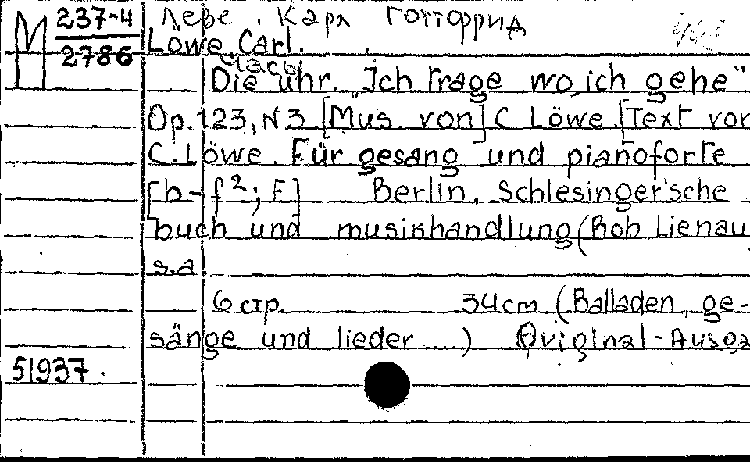 М 237-4 Леве, Карл Готфрид
2786 Löwe, Carl.
Часы
Die uhr. „Ich trage wo ich gehe"
Op. 123, N3 [Mus. von] C Löwe. [Text von
C. Löwe. Für gesang und pianoforte
[b-f²; E] Berlin, Schlesinger'sche
buch und musikhandlung (Rob Lienau
s.a
6 стр. 34cm (Balladen, ge-
sänge und lieder ...) Original-Ausga
51937.